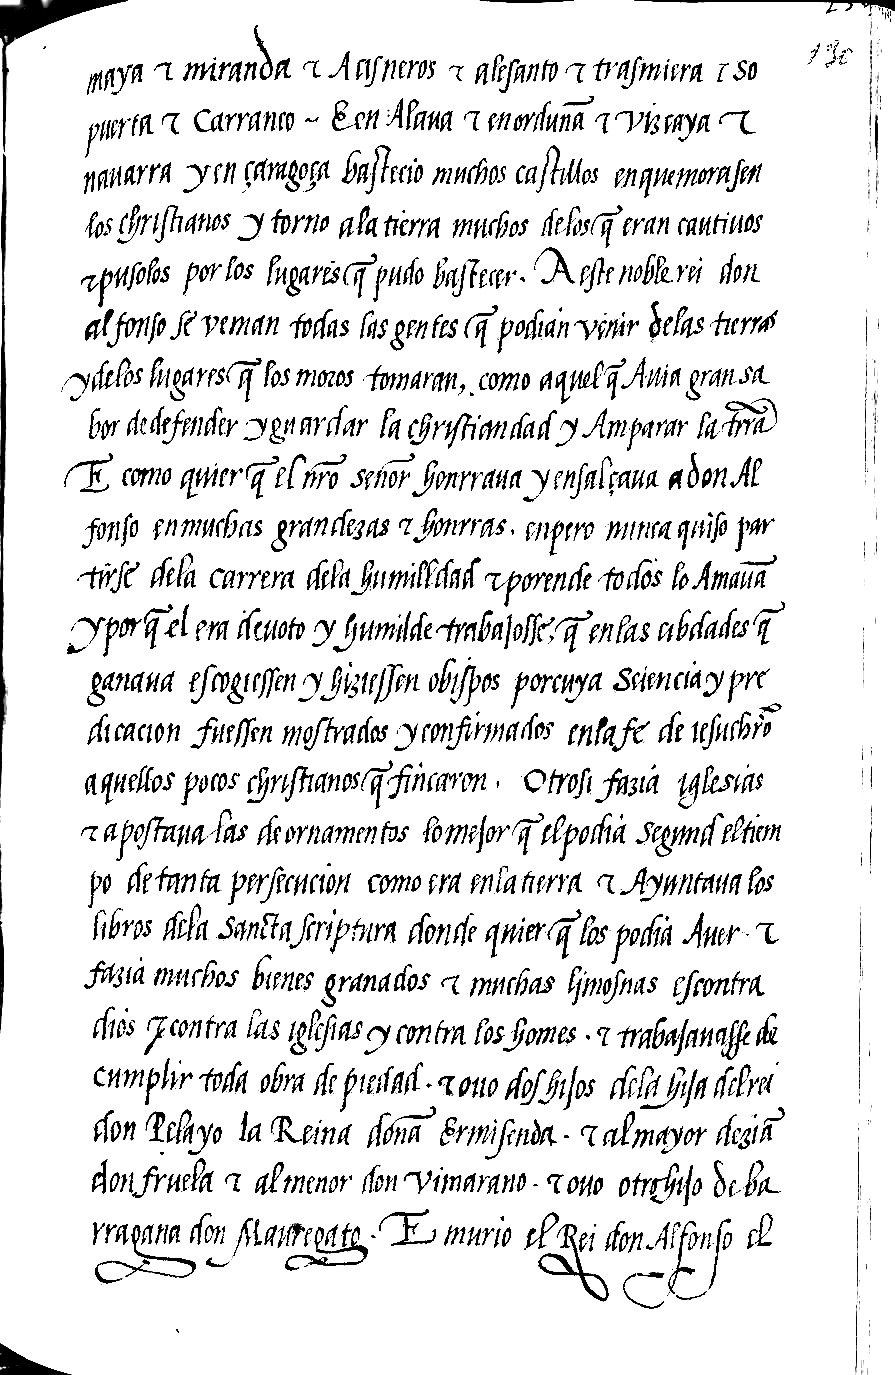 130
maya ⁊ miranda ⁊ Acisneros ⁊ alesanto ⁊ trasmiera ⁊ so
puerta ⁊ Carranco ~ E en Alaua ⁊ en orduña ⁊ Vizcaya ⁊
nauarra y en çaragoça bastecio muchos castillos en que morasen
los christianos y torno a la tierra muchos de los q̃ eran cautiuos
⁊ pusolos por los lugares q̃ pudo bastecer. A este noble rei don
alfonso se venian todas las gentes q̃ podian venir de las tierras
y de los lugares q̃ los moros tomaran, como aquel q̃ Auia gran sa
bor de defender y guardar la christiandad y Amparar la trr̃a
E como quier q̃ el nr̃o señor honrraua y ensalçaua a don Al
fonso en muchas grandezas ⁊ honrras. enpero nunca quiso par
tirse de la carrera de la humilldad ⁊ porende todos lo Amauã
y por q̃ el era deuoto y humilde trabajosse, q̃ en las cibdades q̃
ganaua escogiessen y hiziessen obispos por cuya sciencia y pre
dicacion fuessen mostrados y confirmados en la fe de iesuchr̃o
aquellos pocos christianos q̃ fincaron. Otrosi fazia iglesias
⁊ apostaua las de ornamentos lo mejor q̃ el podia segund el tiem
po de tanta persecucion como era en la tierra ⁊ Ayuntaua los
libros de la Sancta scriptura donde quier q̃ los podia Auer. ⁊
fazia muchos bienes granados ⁊ muchas limosnas escontra
dios y contra las iglesias y contra los homes. ⁊ trabajauasse de
cumplir toda obra de piedad. ⁊ ouo dos hijos de la hija del rei
don Pelayo la Reina doña Ermisenda. ⁊ al mayor deziã
don fruela ⁊ al menor don Vimarano. ⁊ ouo otro hijo de ba
rragana don Mauregato. E murio el Rei don Alfonso el